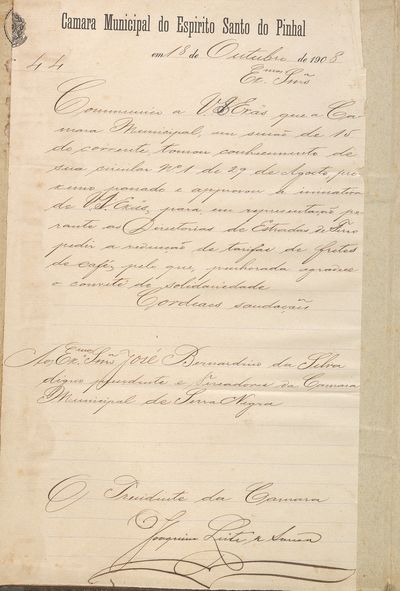 Camara Municipal do Espirito Santo do Pinhal
em 18 de Outubro de 1908
44
Ex.mos Snrs
Communico a V.S Exas que a Ca-
mara Municipal, em sessão de 15
do corrente, tomou conhecimento de
sua circular Nº 1 de 29 de Agosto, pro-
ximo passado e approvou a iniciativa
de V.S. Exas, para, em representação pe-
rante as Directorias de Estradas de Ferro
pedir a reducção de tarifas de fretes
de café, pelo que, penhorada agradece
o convite de solidariedade
Cordiaes saudações
Ao Exmo Snr José Bernardino da Silva
digno presidente e Vereadores da Camara
Municipal de Serra Negra
O Presidente da Camara
Joaquim Leite de Souza